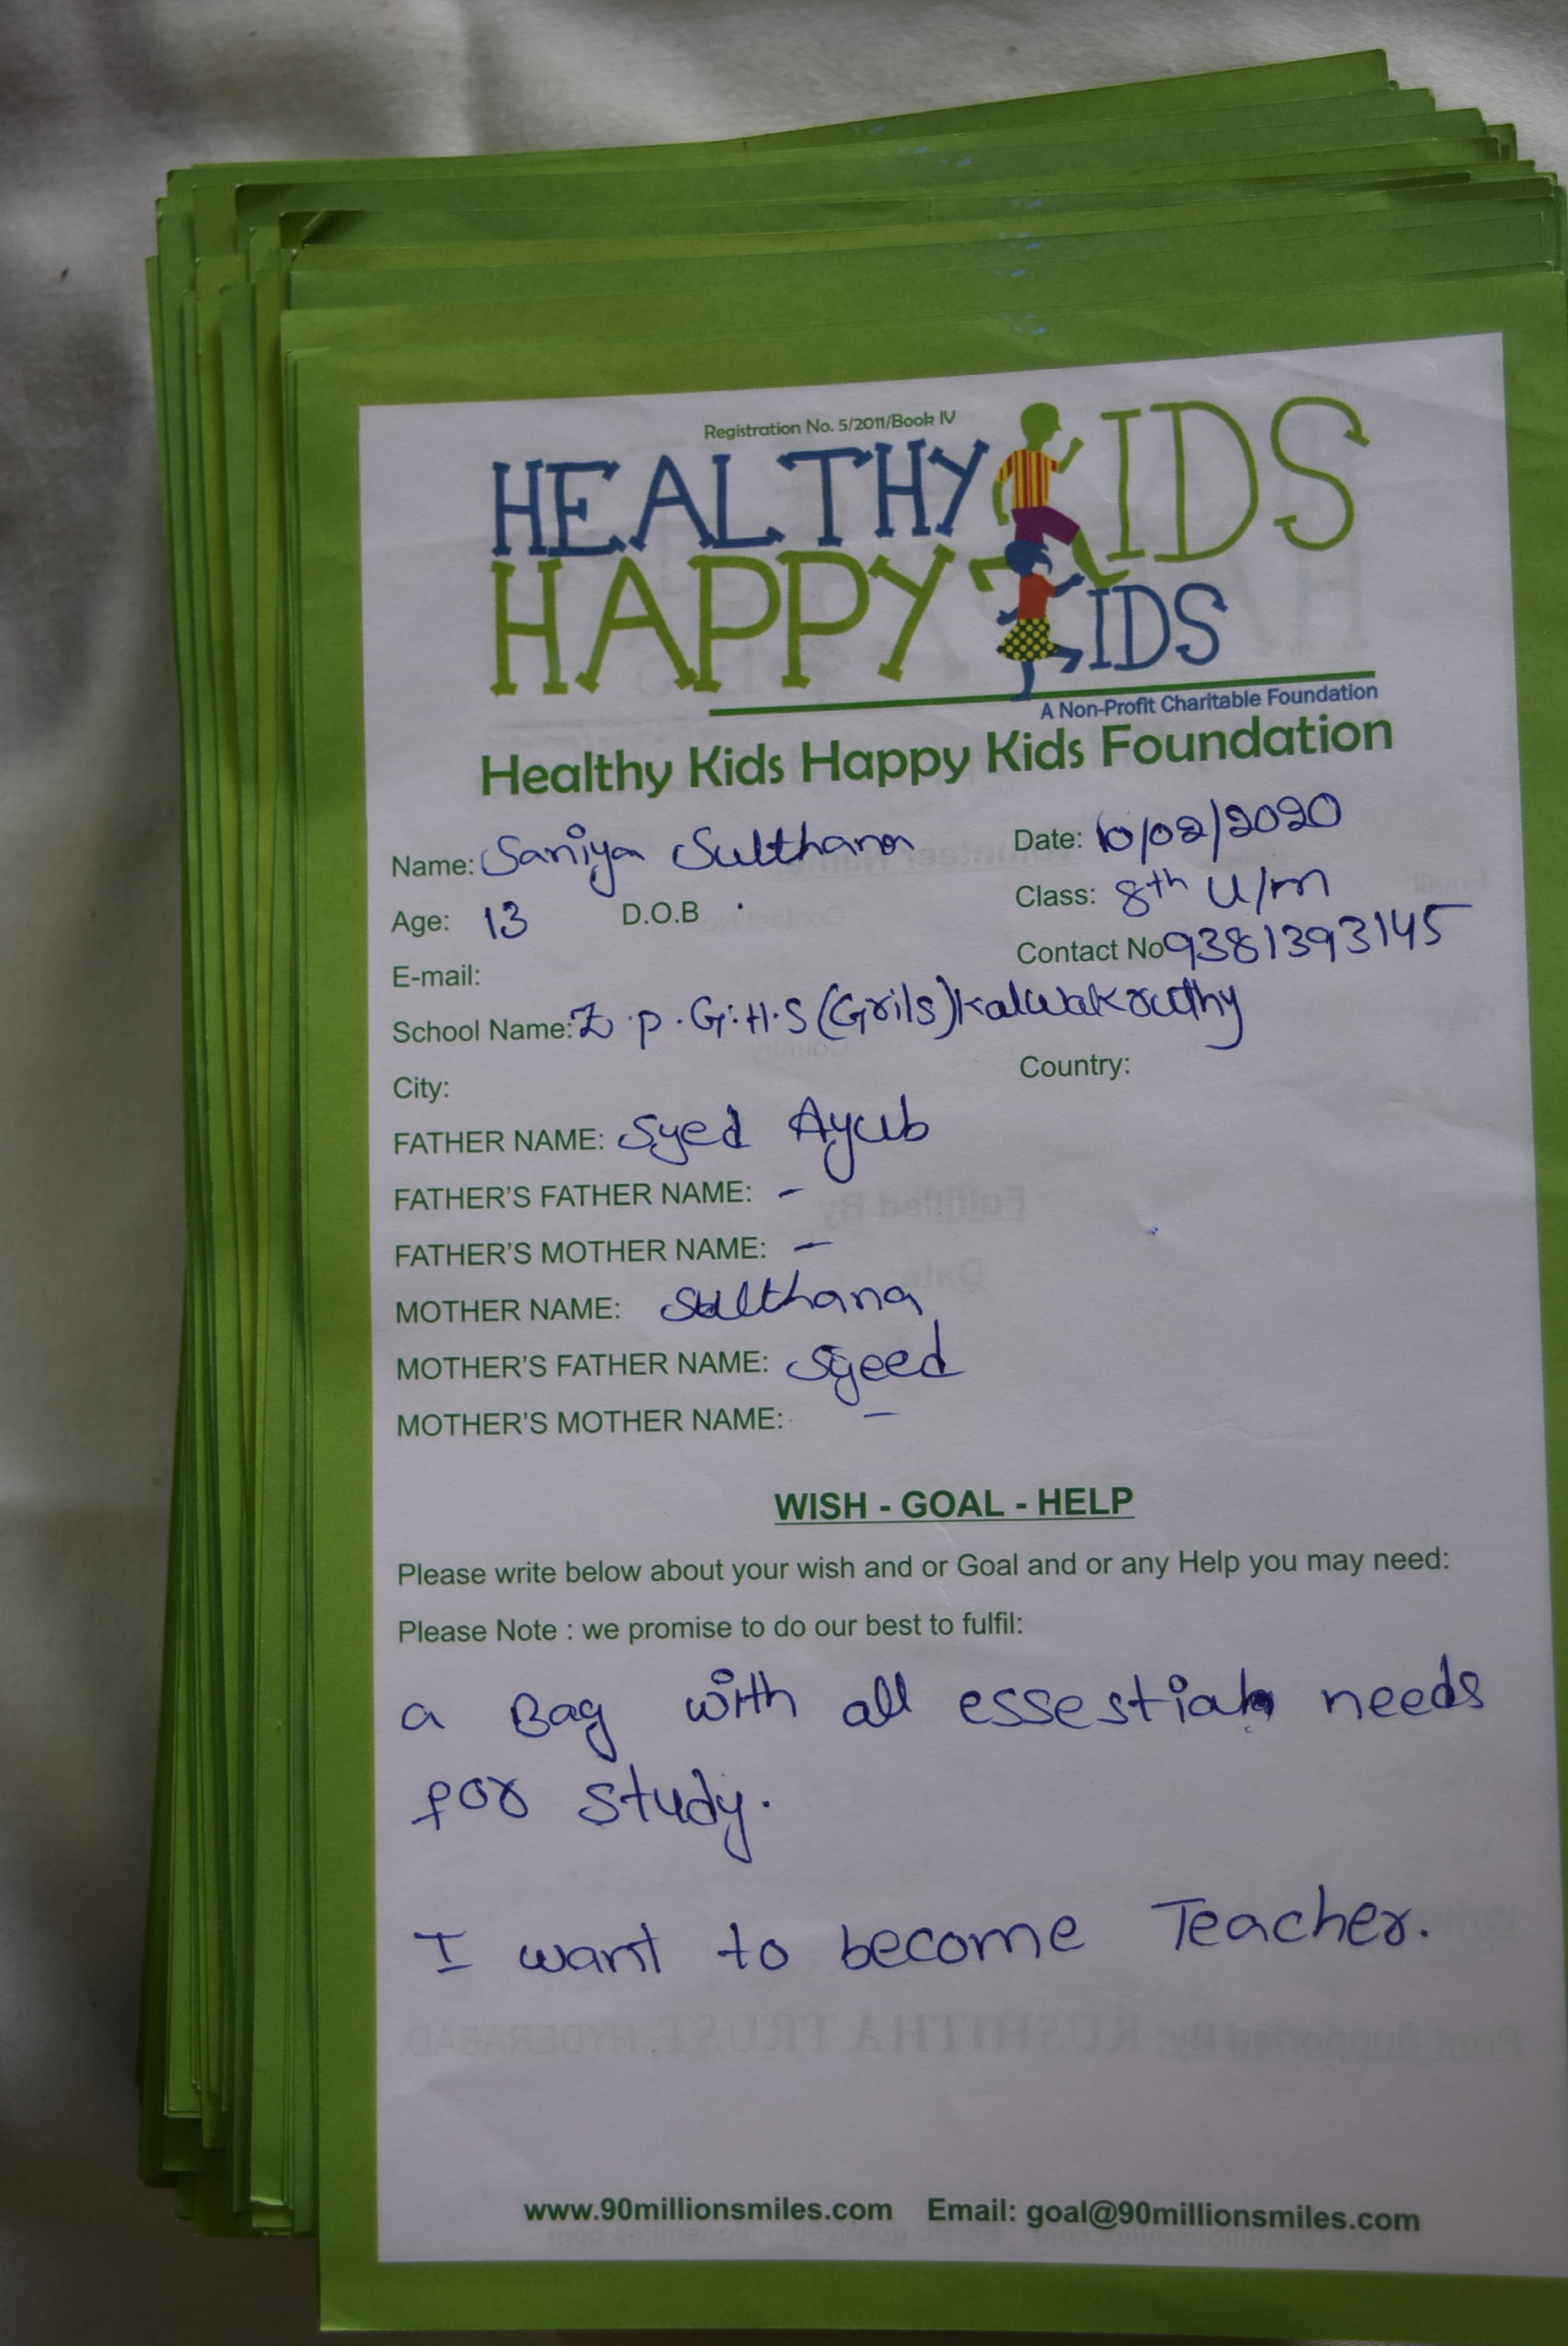 Registration No. 5/2011/Book IV
HEALTHY KIDS
HAPPY KIDS
A Non-Profit Charitable Foundation
Healthy Kids Happy Kids Foundation
Name: Saniya Sulthana Date: 10/02/2020
Age: 13 D.O.B . Class: 8th U/m
E-mail: Contact No 9381393145
School Name: Z.p.G.H.S (Grils) Kalwakurthy
City: Country:
FATHER NAME: Syed Ayub
FATHER'S FATHER NAME: -
FATHER'S MOTHER NAME: -
MOTHER NAME: Sulthana
MOTHER'S FATHER NAME: Syeed
MOTHER'S MOTHER NAME: -
WISH - GOAL - HELP
Please write below about your wish and or Goal and or any Help you may need:
Please Note : we promise to do our best to fulfil:
a Bag with all essestial needs
for study.
I want to become Teacher.
www.90millionsmiles.com Email: goal@90millionsmiles.com